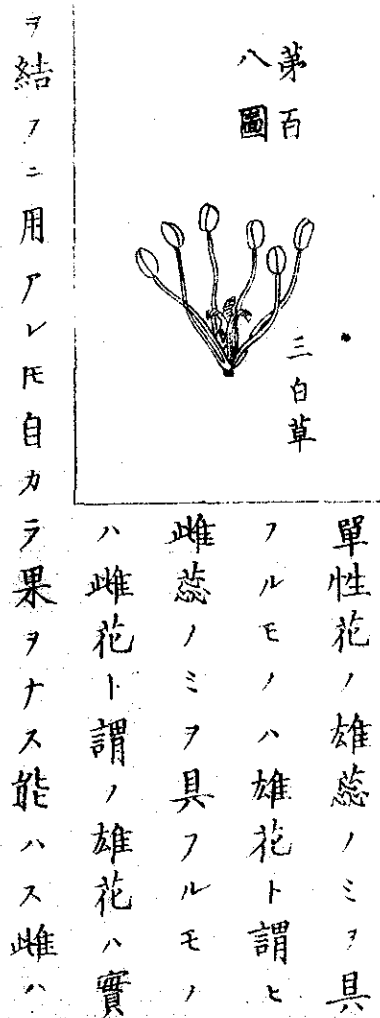 第百
八圖
三白草
單性花ノ雄蕊ノミヲ具
フルモノハ雄花ト謂ヒ
雌蕊ノミヲ具フルモノ
ハ雌花ト謂ノ雄花ハ實
ヲ結フニ用アレ𪜈自カラ果ヲナス能ハス雌ハ